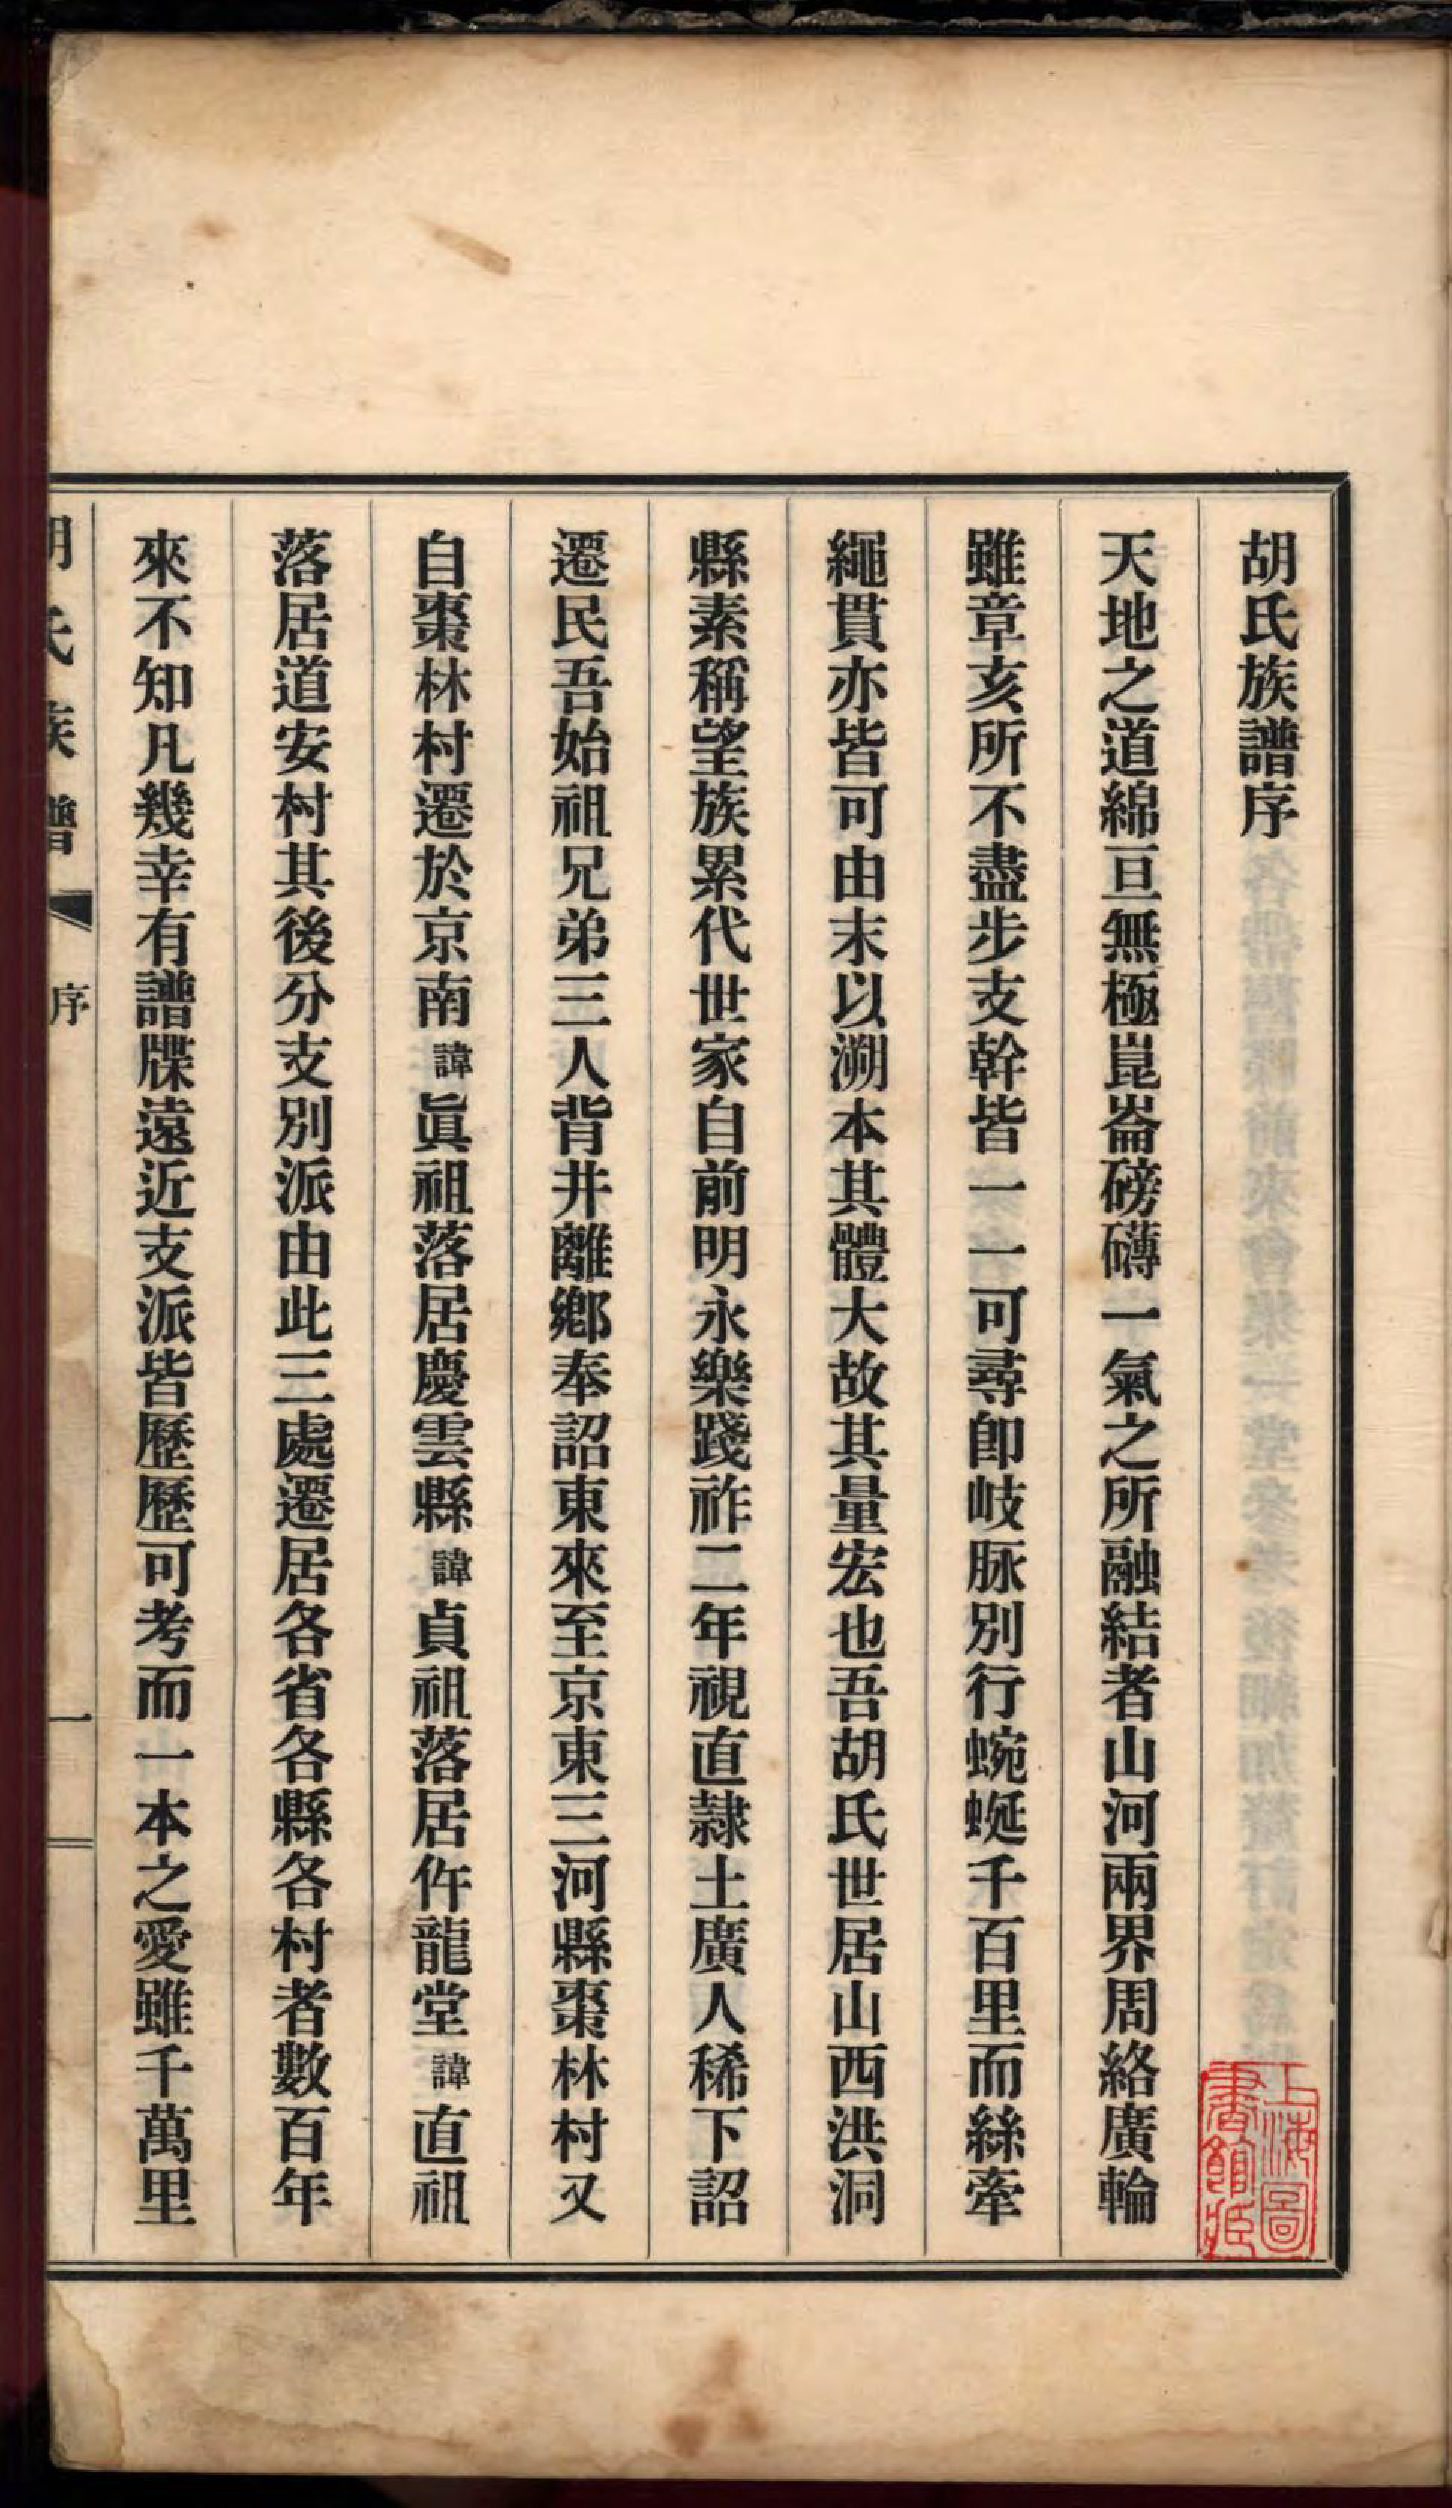 胡氏族譜序
天地之道綿亘無極崑崙磅礴一氣之所融結者山河兩界周絡廣輪
雖章亥所不盡步支幹皆一一可尋卽岐脉別行蜿蜒千百里而絲牽
繩貫亦皆可由末以溯本其體大故其量宏也吾胡氏世居山西洪洞
縣素稱望族累代世家自前明永樂踐祚二年視直隸土廣人稀下詔
遷民吾始祖兄弟三人背井離鄕奉詔東來至京東三河縣棗林村又
自棗林村遷於京南諱眞祖落居慶雲縣諱貞祖落居仵龍堂諱直祖
落居道安村其後分支別派由此三處遷居各省各縣各村者數百年
來不知凡幾幸有譜牒遠近支派皆歷歷可考而一本之愛雖千萬里
胡氏族譜 序 一
上海圖書館藏